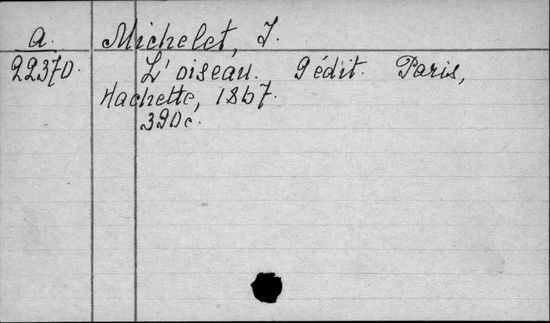 a. Michelet, J.
22370. L'oiseau. 9 édit. Paris,
Hachette, 1867.
390 c.